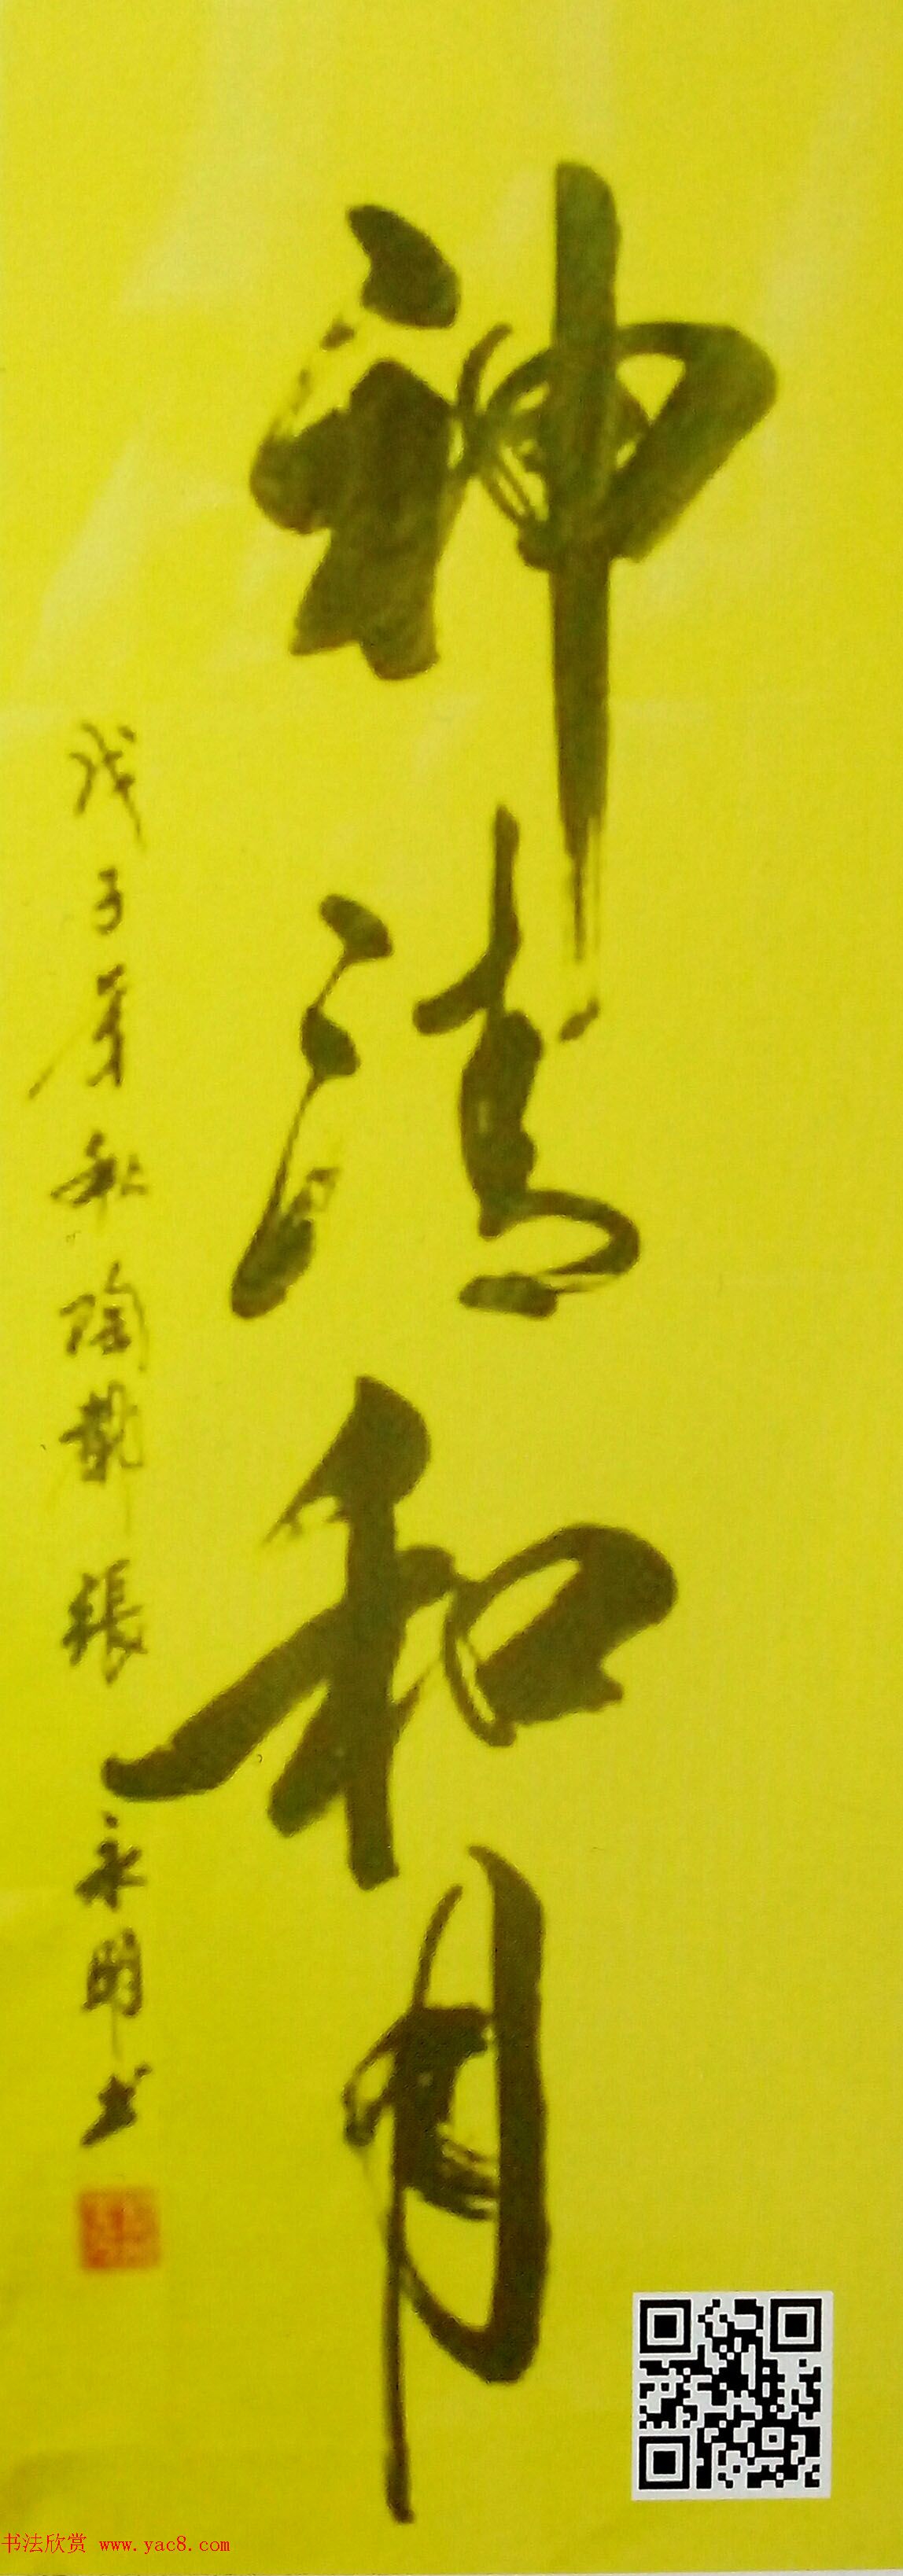 神清和月
戊子 秋陶 張永明书
书法欣赏 www.yac8.com